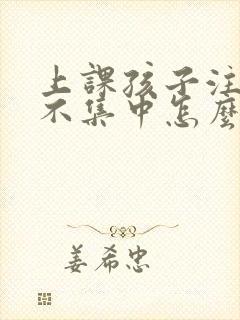 上課孩子注
不集中怎麼
姜希忠